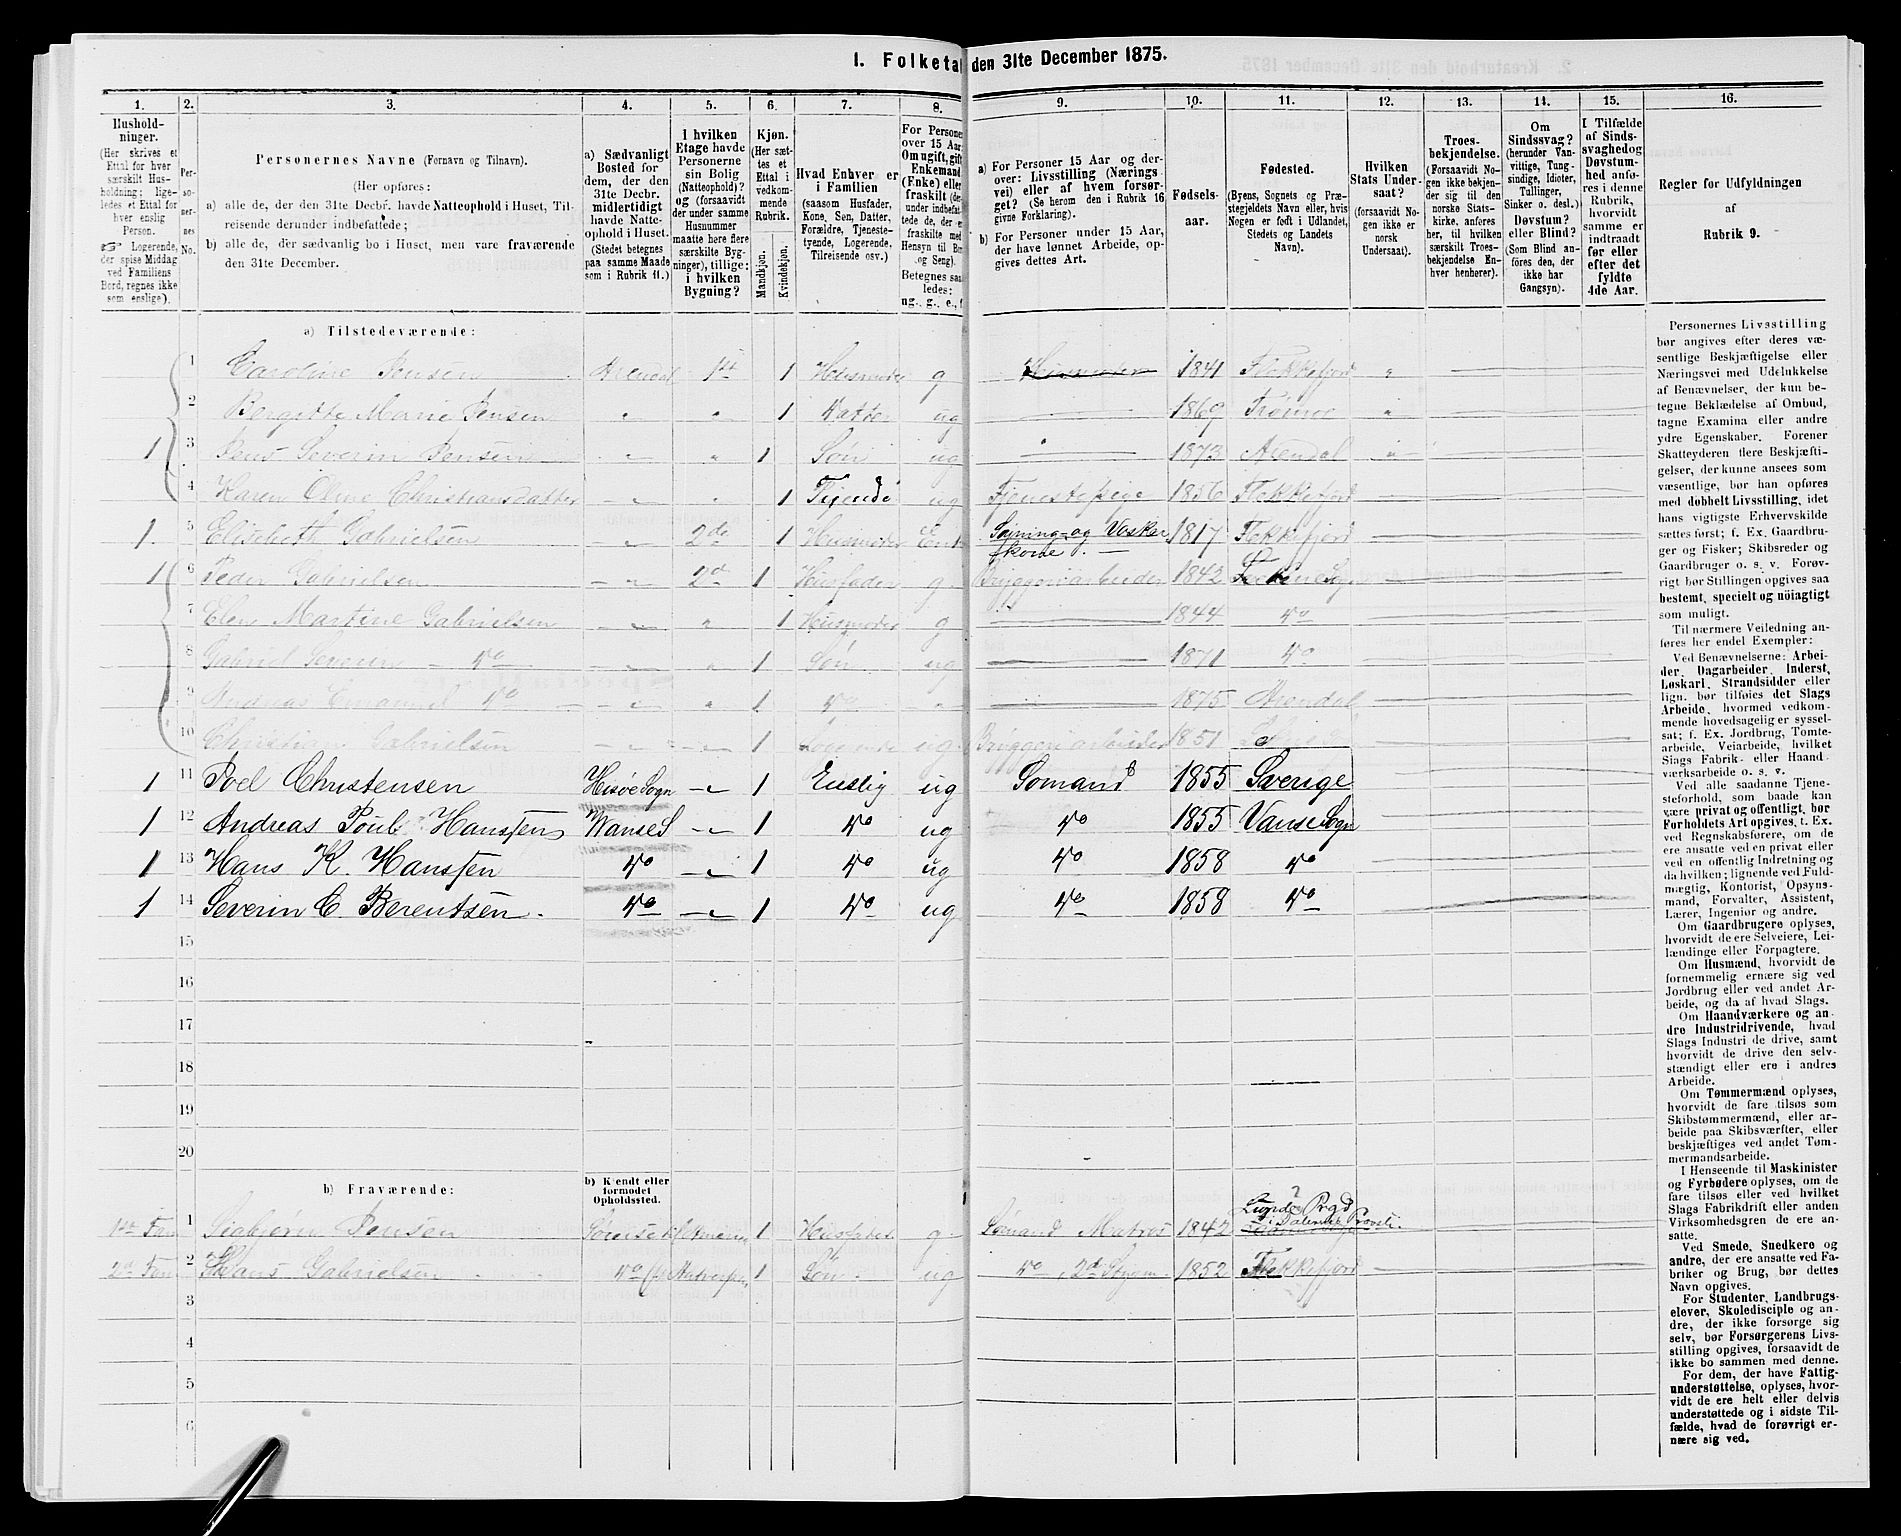 1. Folketal den 31te December 1875.
1. 2. 3. 4. 5. 6. 7. 8. 9. 10. 11. 12. 13. 14. 15. 16.
Hushold-
ninger.
(Her skrives et
Ettal for hver
særskilt Hus-
holdning; lige-
ledes et Ettal for
hver enslig
Person.
☞ Logerende,
der spise Middag
ved Familiens
Bord, regnes ikke
som enslige).
Per-
so-
ner-
nes
No.
Personernes Navne (Fornavn og Tilnavn).
(Her opføres:
a) alle de, der den 31te Decbr. havde Natteophold i Huset, Til-
reisende derunder indbefattede;
b) alle de, der sædvanlig bo i Huset, men vare fraværende
den 31te December.
a) Sædvanligt
Bosted for
dem, der den
31te Decbr.
midlertidigt
havde Natte-
ophold i Huset.
(Stedet betegnes
paa samme Maade
som i Rubrik 11.)
I hvilken
Etage havde
Personerne
sin Bolig
(Natteophold)?
og (forsaavidt
der under samme
Husnummer
maatte høre flere
særskilte Byg-
ninger), tillige:
i hvilken
Bygning?
Kjøn.
(Her sæt-
tes et
Ettal i
vedkom-
mende
Rubrik.
Mandkjøn.
Kvindekjøn.
Hvad Enhver er
i Familien
(saasom Husfader,
Kone, Søn, Datter,
Forældre, Tjeneste-
tyende, Logerende,
Tilreisende osv.)
For Persone
over 15 Aar
Om ugift, gift
Enkemand
(Enke) elle
fraskilt (der
under indbefat
tede de, der e
fraskilte med
Hensyn til Bo
og Seng).
Betegnes saa
ledes:
ug., g., e., f
a) For Personer 15 Aar og der-
over: Livsstilling (Nærings
vei) eller af hvem forsør-
get? (Se herom den i Rubrik 16
givne Forklaring).
b) For Personer under 15 Aar,
der have lønnet Arbeide, op-
gives dettes Art.
Fødsels-
aar.
Fødested.
(Byens, Sognets og Præ-
stegjeldets Navn eller, hvis
Nogen er født i Udlandet,
Stedets og Landets
Navn).
Hvilken
Stats Under-
saat?
(forsaavidt No-
gen ikke er
norsk
Undersaat).
Troes-
bekjendelse.
(Forsaavidt No
gen ikke bekjen-
der sig til den
norske Stats-
kirke, anføres
her, til hvilken
særskilt Troes-
bekjendelse En-
hver henhører).
Om
Sindssvag?
(herunder Van-
vittige, Tung-
sindige, Idioter,
Tullinger,
Sinker o. desl.)
Døvstum?
eller Blind?
(Som Blind an-
føres den, der
ikke har
Gangsyn).
I Tilfælde
af Sinds-
svaghed og
Døvstum-
hed anfø-
res i denne
Rubrik,
hvorvidt
samme er
indtraadt
før eller
efter det
fyldte
4de Aar.
Regler for Udfyldningen
af
Rubrik 9.
a) Tilstedeværende:
1 Caroline Jensen Arendal 1ste 1 Husmoder g Husmoder 1841 Flekkefjord "
2 Bergitte Marie Jensen " " 1 Datter ug 1869 Tromø "
1 3 Jens Severin Jensen " " 1 Søn ug 1873 Arendal "
4 Karen Oline Christiansdatter " " 1 Tjende ug Tjenestepige 1856 Flekkefjord
1. 5 Elisebeth Gabrielsen " 2de 1 Husmoder Enk Søyning og Vasker kone 1817 Flekkefjord
1 6 Peder Gabrielsen " 2d 1 Husfader g Bryggeriarbeider 1842
7 Elen Martine Gabrielsen " " 1 Husmoder g 1844 do
8 Gabriel Severin do " " 1 Søn ug 1871 do
9 Andreas Emanuel do " " 1 do " 1875 Arendal
10 Christian Gabrielsen " " 1 Logerende ug Bryggeriarbeider 1851
1 11 Poel Christensen Hisøe Sogn " 1 Enslig ug Sømand 1855 Sverige
1 12 Andreas Poul Hansten Wanse S " 1 do ug do 1855 Vanse Sogn
1 13 Hans K. Hansten do " 1 do ug do 1858 do
1 14 Severin C. Berentsen. do " 1 do ug do 1858 do
15
16
17
18
19
20
b) Fraværende:
b) Kjendt eller
formodet
Opholdssted.
1ste Fam 1 Jensen 1 Husfader g Sømand Matros 1842 Lunde Prgd i Dalernes Provsti.
2d Fam 2 Hans Gabrielsen do Antverpen 1 Søn ug do, 2d Styrm. 1852 Flekkefjord
3
4
5
6
Personernes Livsstilling
bør angives efter deres væ-
sentlige Beskjæftigelse eller
Næringsvei med Udelukkelse
af Benævnelser, der kun be-
tegne Beklædelse af Ombud,
tagne Examina eller andre
ydre Egenskaber. Forener
Skatteyderen flere Beskjæfti-
gelser, der kunne ansees som
væsentlige, bør han opføres
med dobbelt Livsstilling, idet
hans vigtigste Erhvervskilde
sættes først; f. Ex. Gaardbru-
ger og Fisker; Skibsreder og
Gaardbruger o. s. v. Forøv-
rigt bør Stillingen opgives saa
bestemt, specielt og nöiagtigt
som muligt.
Til nærmere Veiledning an-
føres her endel Exempler:
Ved Benævnelserne: Arbei-
der, Dagarbeider, Inderst,
Løskarl, Strandsidder eller
lign. bør tilføies det Slags
Arbeide, hvormed vedkom-
mende hovedsagelig er syssel-
sat; f. Ex. Jordbrug, Tomte-
arbeide, Veiarbeide, hvilket
Slags Fabrik- eller Haand-
værksarbeide o. s. v.
Ved alle saadanne Tjene-
steforhold, som baade kan
være privat og offentligt, bør
Forholdets Art opgives, t. Ex.
ved Regnskabsførere, om de
ere ansatte ved en privat eller
ved en offentlig Indretning og
da hvilken; lignende ved Fuld-
mægtig, Kontorist, Opsyns-
mand, Forvalter, Assistent,
Lærer, Ingeniør og andre.
Om Gaardbrugere oplyses,
hvorvidt de ere Selveiere, Lei-
lændinge eller Forpagtere.
Om Husmænd, hvorvidt de
fornemmelig ernære sig ved
Jordbrug eller ved andet Ar-
beide, og da af hvad Slags.
Om Haandværkere og an-
dre Industridrivende, hvad
Slags Industri de drive, samt
hvorvidt de drive den selv-
stændigt eller ere i andres
Arbeide.
Om Tømmermænd oplyses,
hvorvidt de fare tilsøs som
Skibstømmermænd, eller ar-
beide paa Skibsværfter, eller
beskjæftiges ved andet Tøm-
mermandsarbeide.
I Henseende til Maskinister
og Fyrbødere oplyses, om de
fare tilsøs eller ved hvilket
Slags Fabrikdrift eller anden
Virksomhedsgren de ere an-
satte.
Ved Smede, Snedkere og
andre, der ere ansatte ved Fa-
briker og Brug, bør dettes
Navn opgives.
For Studenter, Landbrugs-
elever, Skoledisciple og an-
dre, der ikke forsørge sig
selv, bør Forsørgerens Livs-
stilling opgives, forsaavidt de
ikke bo sammen med denne.
For dem, der have Fattig-
understøttelse, oplyses, hvor-
vidt de ere helt eller delvis
understøttede og i sidste Til-
fælde, hvad de forøvrigt er-
nære sig ved.